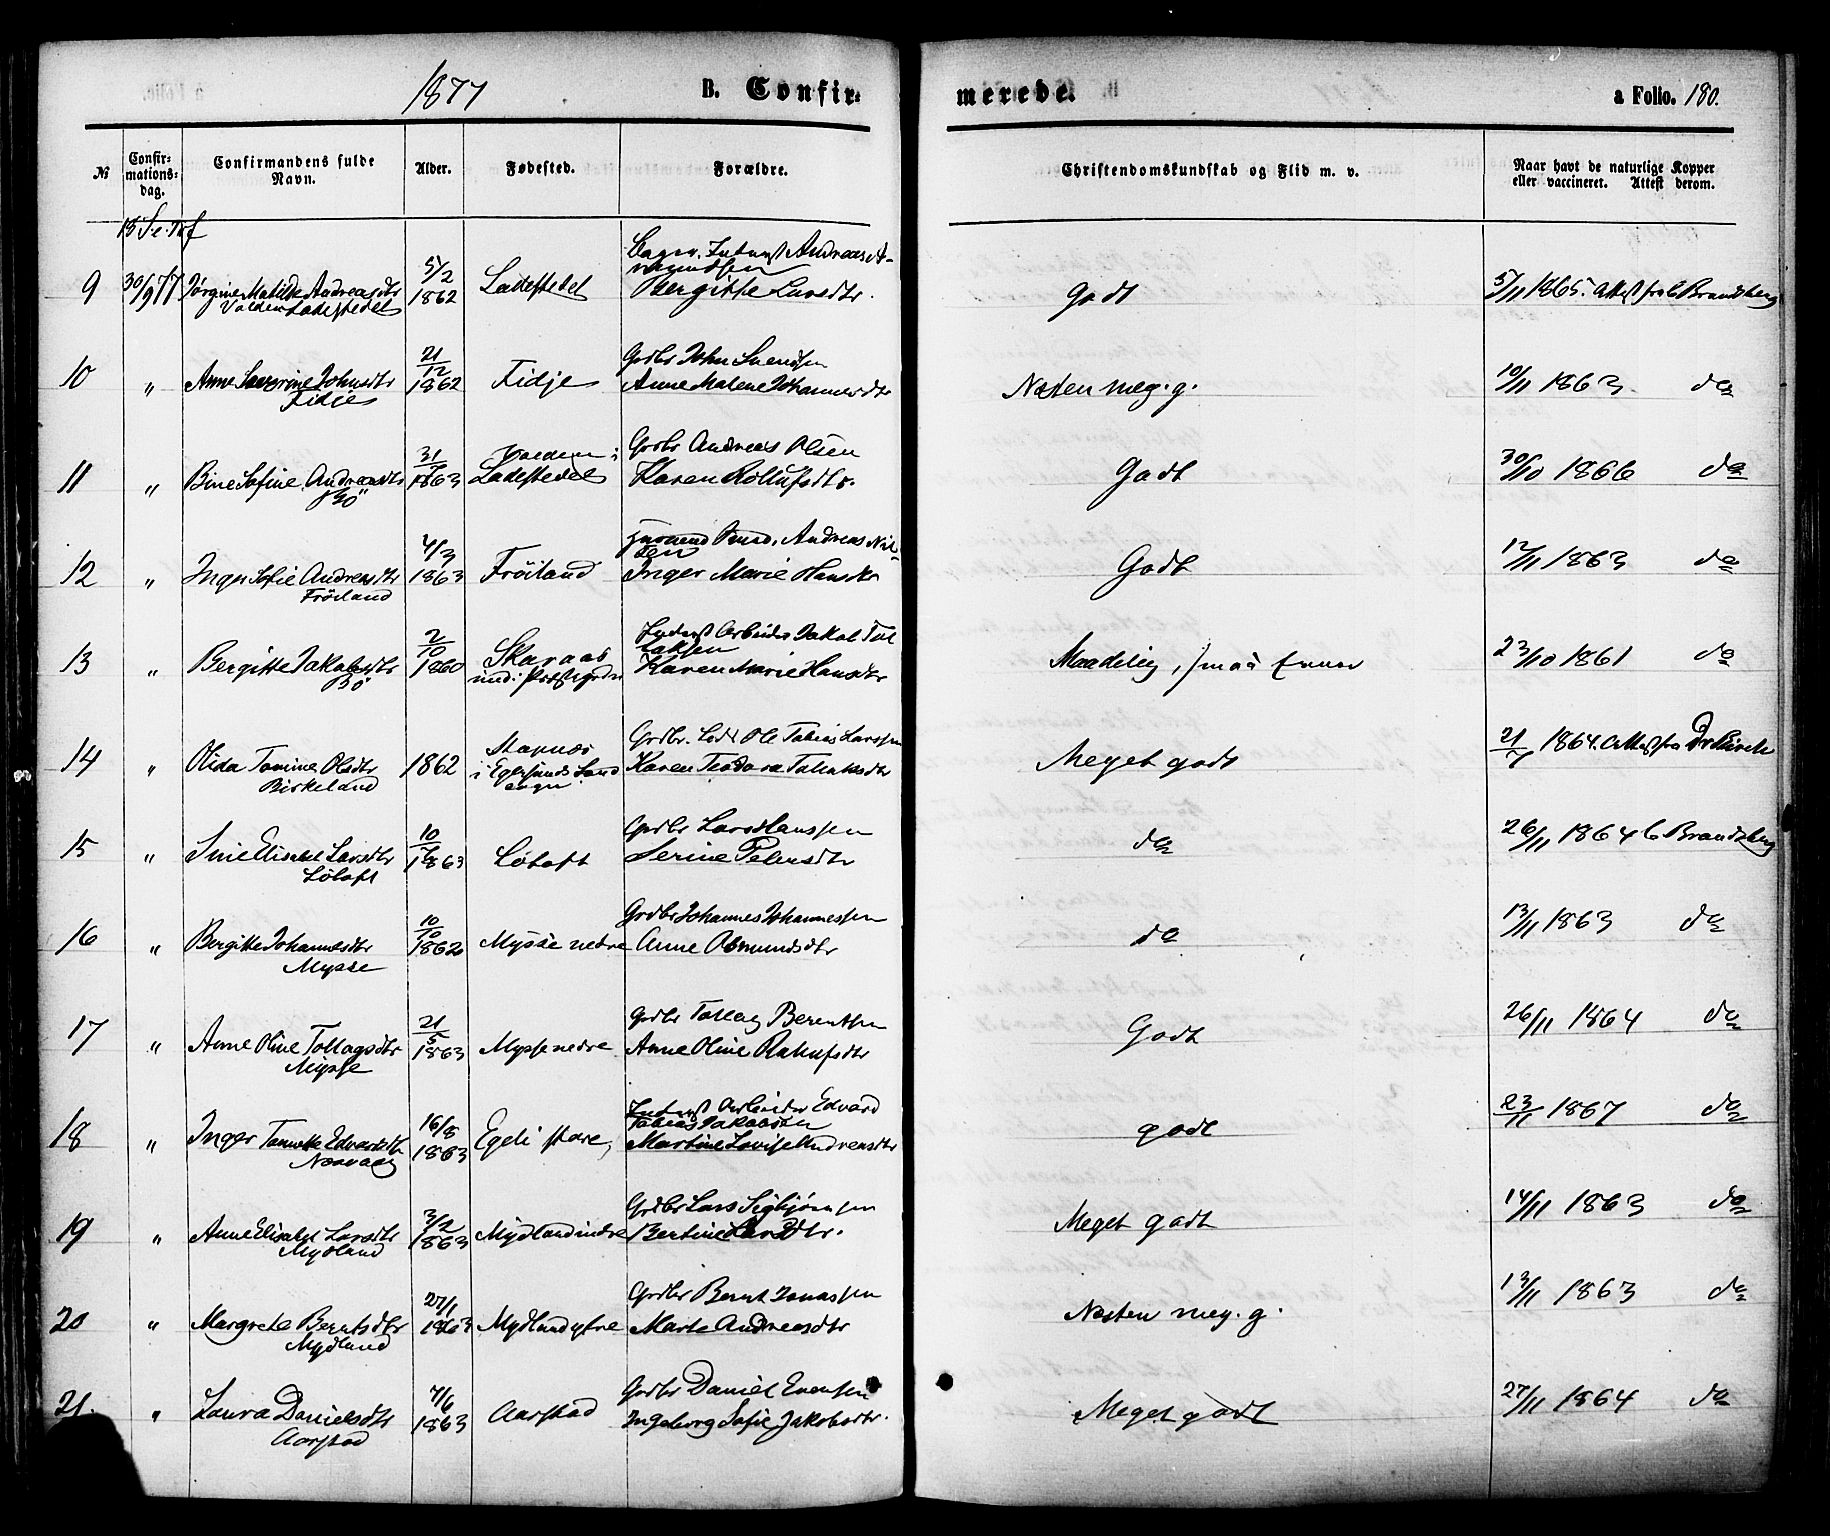 1877 B. Confir- merede. a Folio. 180.
№ Confirmationsdag. Confirmandens fulde Navn. Alder. Fødested. Forældre. Christendomskundskab og Flid m. v. Naar havt de naturlige Kopper eller vaccineret. Attest derom.
5/2 Andreas A-
9 30/9 77 Jørgine Matilde Andreasdtr 1862 Ladestedet Bergitte Larsdtr. Godt 5/11 1865. Attest fra C Brandzberg
Ladestedet
21/12 Grdbr John Svendsen
10 " Anne Severine Johnsdtr 1862 Fidje Anne Malene Johannesdtr Næsten meg. g. 10/11 1863 do
Fidje
31 Grdbr Andreas Olsen
11 " Bine Sofine Andreasdtr 1863 Ladestedet Karen Rolufsdtr. Godt 30/10 1866 do
Bö
4/3 Andreas Nil-
sen
12 " Inger Sofie Andreasdtr 1863 Fröiland Inger Marie Hansdtr Godt 12/11 1863 do
Fröiland
2/10 Inderst Arbeider Jakob Tol
laksen
13 " Bergitte Jakobsdtr 1860 Skaraas Karen Marie Hansdtr Maadelig, 23/10 1861 do
Bö
Grdbr. Ole Tobias Larssen
14 " Olida Tomine Olsdtr 1862 i Egersunds Land Karen Teodora Tollaksdtr Meget godt 21/7 1864. Attest fra Dr Kirch
Birkeland sogn
10 Grdbr Lars Hanssen
15 " Sine Elisabet Larsdtr 1863 Løtoft Serine Petersdtr do 26/11 1864 C Brandzberg
Løtoft
10/10 Grdbr Johannes Johannessen
16 " Bergitte Johannesdtr 1862 Mysse nedre Anne Osmundsdtr do 13/11 1863 do
Mysse
21/5 Grdbr Tollag Berentsen
17 " Anne Oline Tollagsdtr 1863 Mysse nedre Anne Oline Rolufsdtr Godt 26/11 1864 do
Mysse
16/8 Inderst Arbeider Edvard
Tobias Jakobsen
18 " Inger Tonette Edvardsdtr 1863 Egeli store, Martine Lovise Andreasdtr godt 23/11 1867 do
3/2 Grdbr Lars Sigbjørnsen
19 " Anne Elisabet Larsdtr 1863 Mydland indre Bertine Larsdtr. Meget godt 14/11 1863 do
Mydland
27/1 Grdbr Bernt Jonassen
20 " Margrete Berntsdtr 1863 Mydland ytre Marte Andreasdtr Næsten meg. g. 13/11 1863 do
Mydland
7/6 Grdbr Daniel Evensen
21. " Laura Danielsdtr 1863 Aarstad Ingeborg Sofie Jakobsdtr. Meget godt 27/11 1864 do
Aarstad